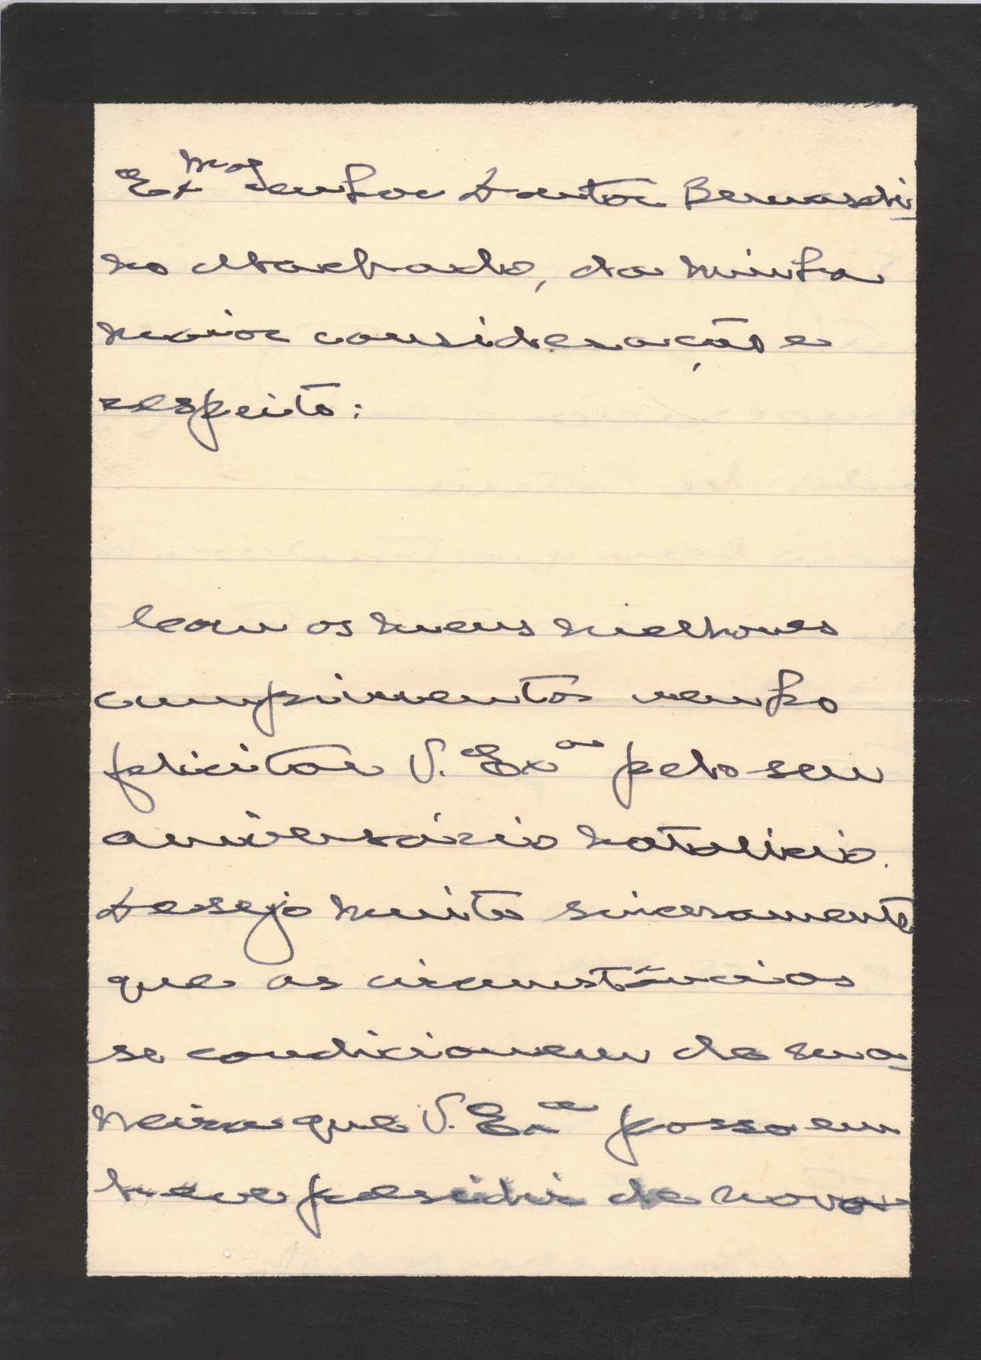 Ex.mo Senhor Doutor Bernardi-
no Machado, da minha
maior consideração e
respeito:
Com os meus melhores
cumprimentos venho
felicitar V. Ex.a pelo seu
aniversário natalicio.
Desejo muito sinceramente
que as circunstâncias
se condicionem de ma-
neira que V. Ex.a possa em
breve presidir de novo